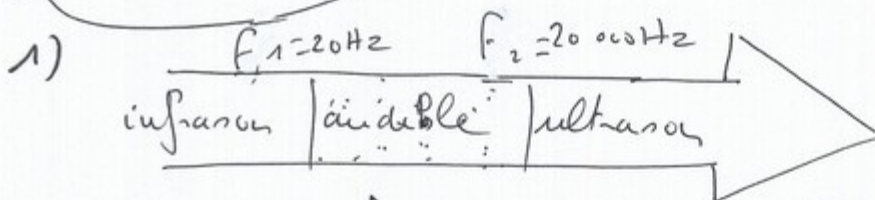 1)
F1=20Hz F2=20 000Hz
infrason audible ultrason